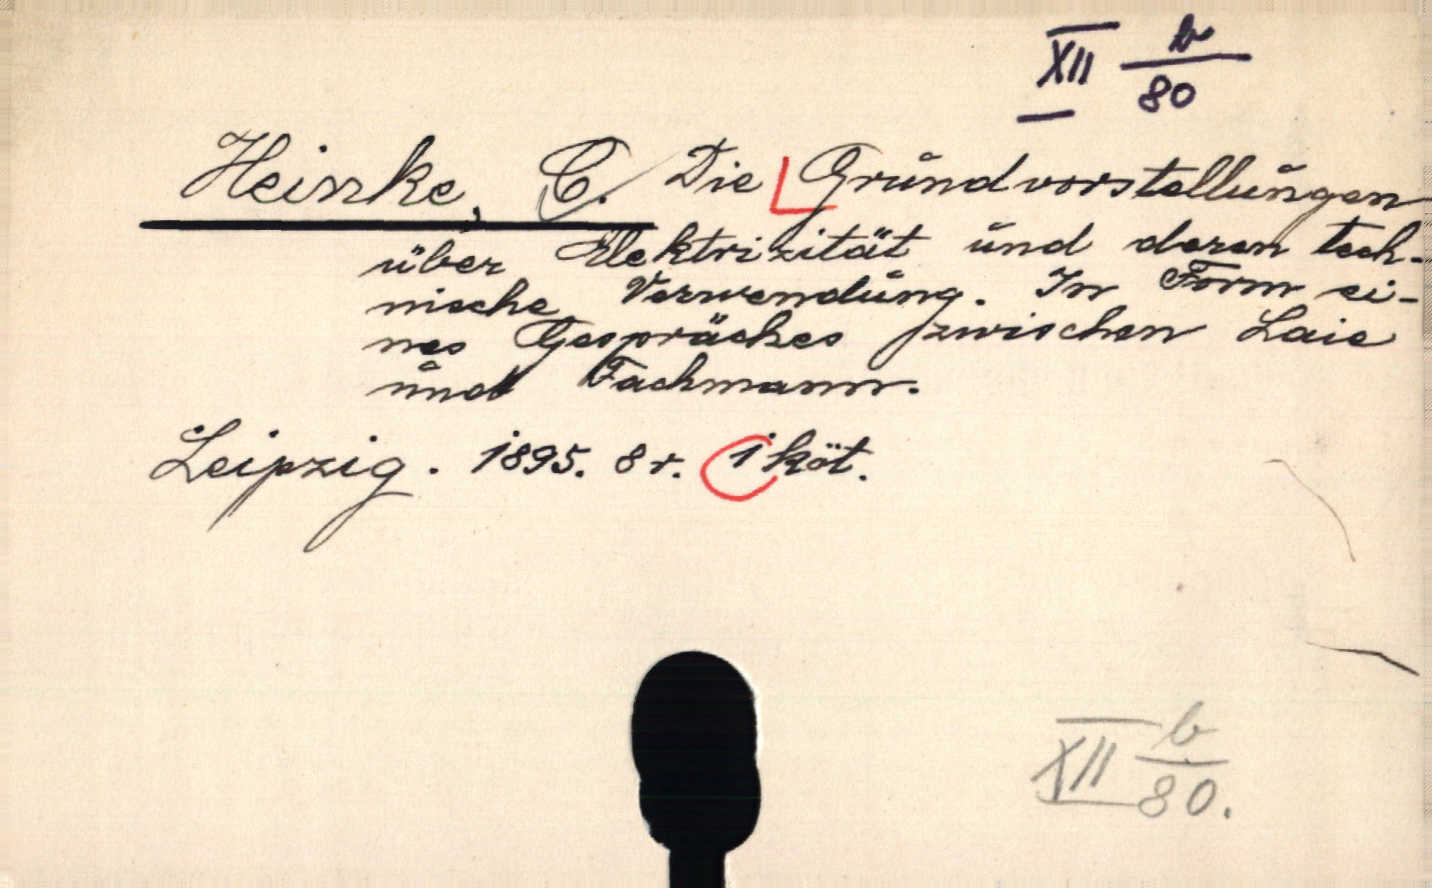 XII b/80
Heinke, C. Die Grundvorstellungen
über Elektrizität und deren tech-
nische Verwendung. In Form ei-
nes Gespräches zwischen Laie
und Fachmann.
Leipzig. 1895. 8r. 1 köt.
XII b/80.